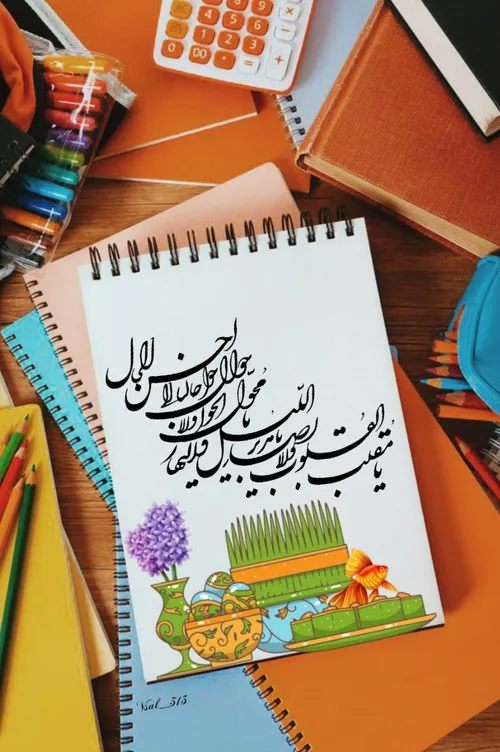 یا مقلب القلوب والابصار
یا مدبر اللیل والنهار
یا محول الحول والاحوال
حول حالنا الی احسن الحال
Vsal_313